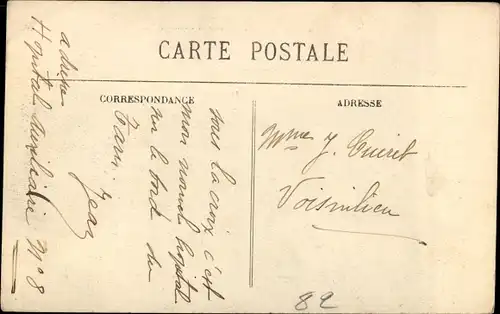 CARTE POSTALE
CORRESPONDANCE
ADRESSE
sous la croix c'est
mon nouvel hopital
sur le bord du
Tarn. Jean
adresse
Hopital Auxiliaire N° 8
Mme J. Cuiret
Voisinlieu
82